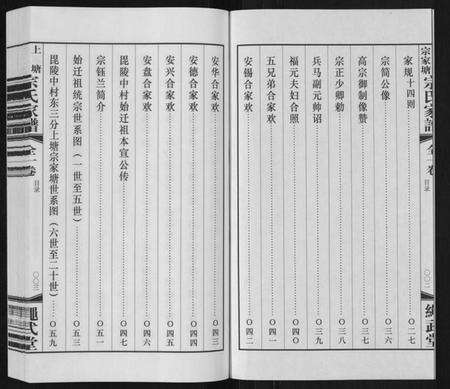 宗家塘宗氏家譜
全一卷
目录
〇〇二
繩武堂
家规十四则……〇二七
宗简公像……〇三六
高宗御制像赞……〇三七
宗正少卿勅……〇三八
兵马副元帅诏……〇三九
福元夫妇合照……〇四〇
五兄弟合家欢……〇四一
安锡合家欢……〇四二
安华合家欢……〇四三
安德合家欢……〇四四
安兴合家欢……〇四五
安盘合家欢……〇四六
毘陵中村始迁祖本宣公传……〇四七
宗钰兰简介……〇五一
始迁祖统宗世系图（一世至五世）……〇五三
毘陵中村东三分上塘宗家塘世系图（六世至二十世）……〇五九
上塘宗氏家譜
全一卷
目录
〇〇三
繩武堂